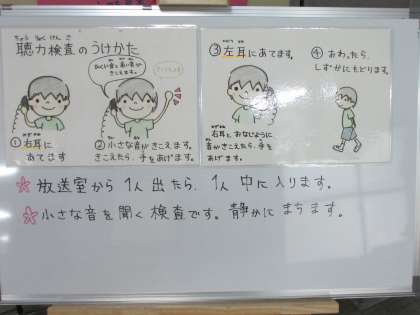 ちょうりょくけんさ
聴力検査のうけかた
ひくい音と高い音が
きこえます。
①右耳に
あてます
②小さな音がきこえます。
きこえたら、手をあげます。
③左耳にあてます。
右耳と、おなじように
音がきこえたら、手を
あげます。
④おわったら、
しずかにもどります。
☆放送室から1人出たら、1人中に入ります。
☆小さな音を聞く検査です。静かにまちます。